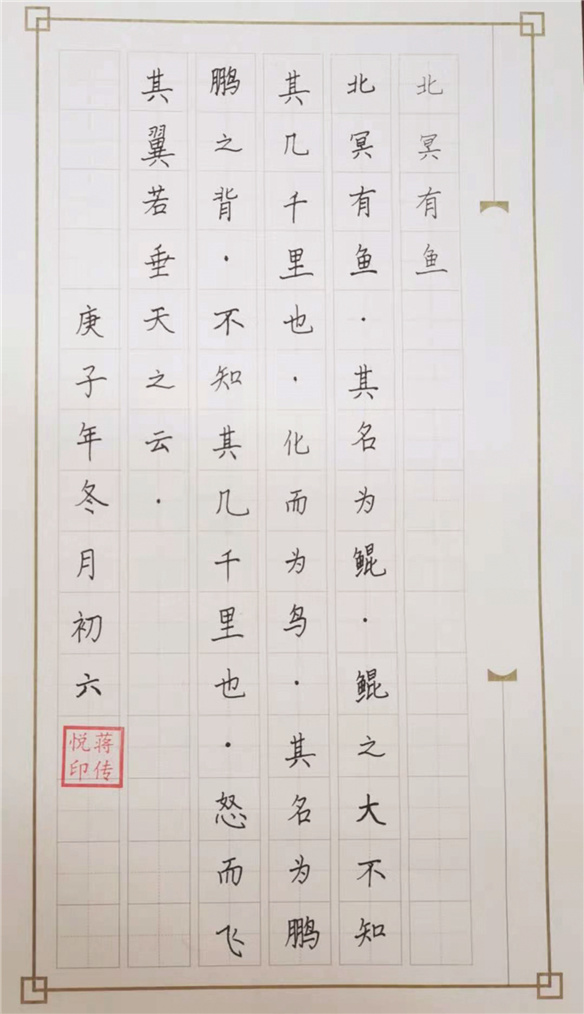 北冥有鱼
北冥有鱼·其名为鲲·鲲之大不知
其几千里也·化而为鸟·其名为鹏
鹏之背·不知其几千里也·怒而飞
其翼若垂天之云·
庚子年冬月初六
蒋传
悦印